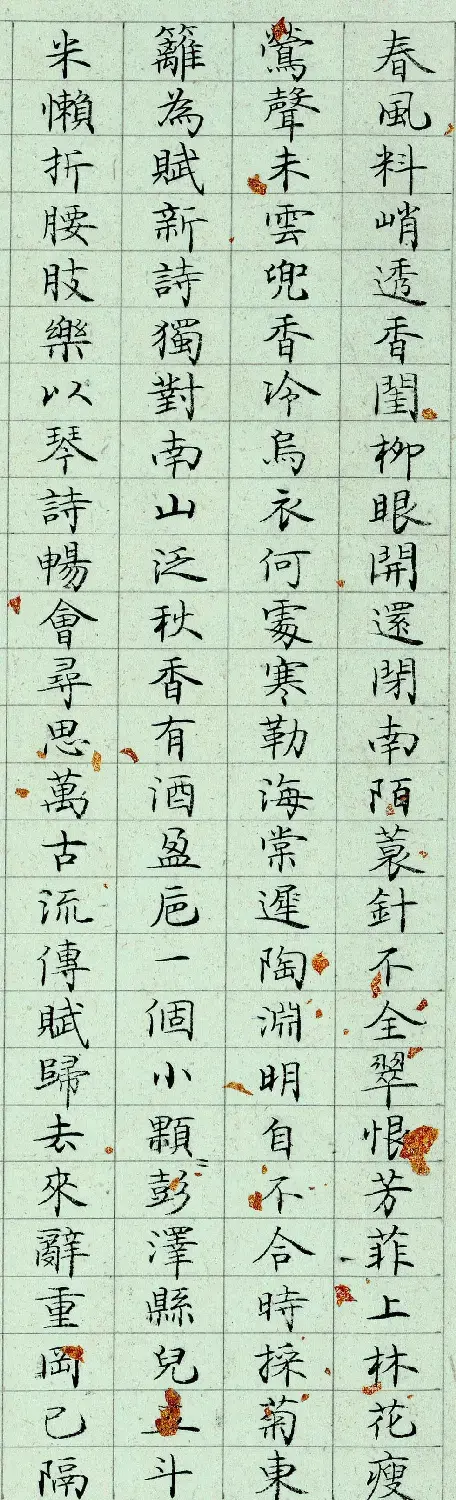 春風料峭透香閨柳眼開還閉南陌蓑針不全翠恨芳菲上林花瘦
鶯聲未雲兜香冷烏衣何處寒勒海棠遲陶淵明自不合時採菊東
籬為賦新詩獨對南山泛秋香有酒盈卮一個小顆〻彭澤縣兒五斗
米懶折腰肢樂以琴詩暢會尋思萬古流傳賦歸去來辭重岡已隔